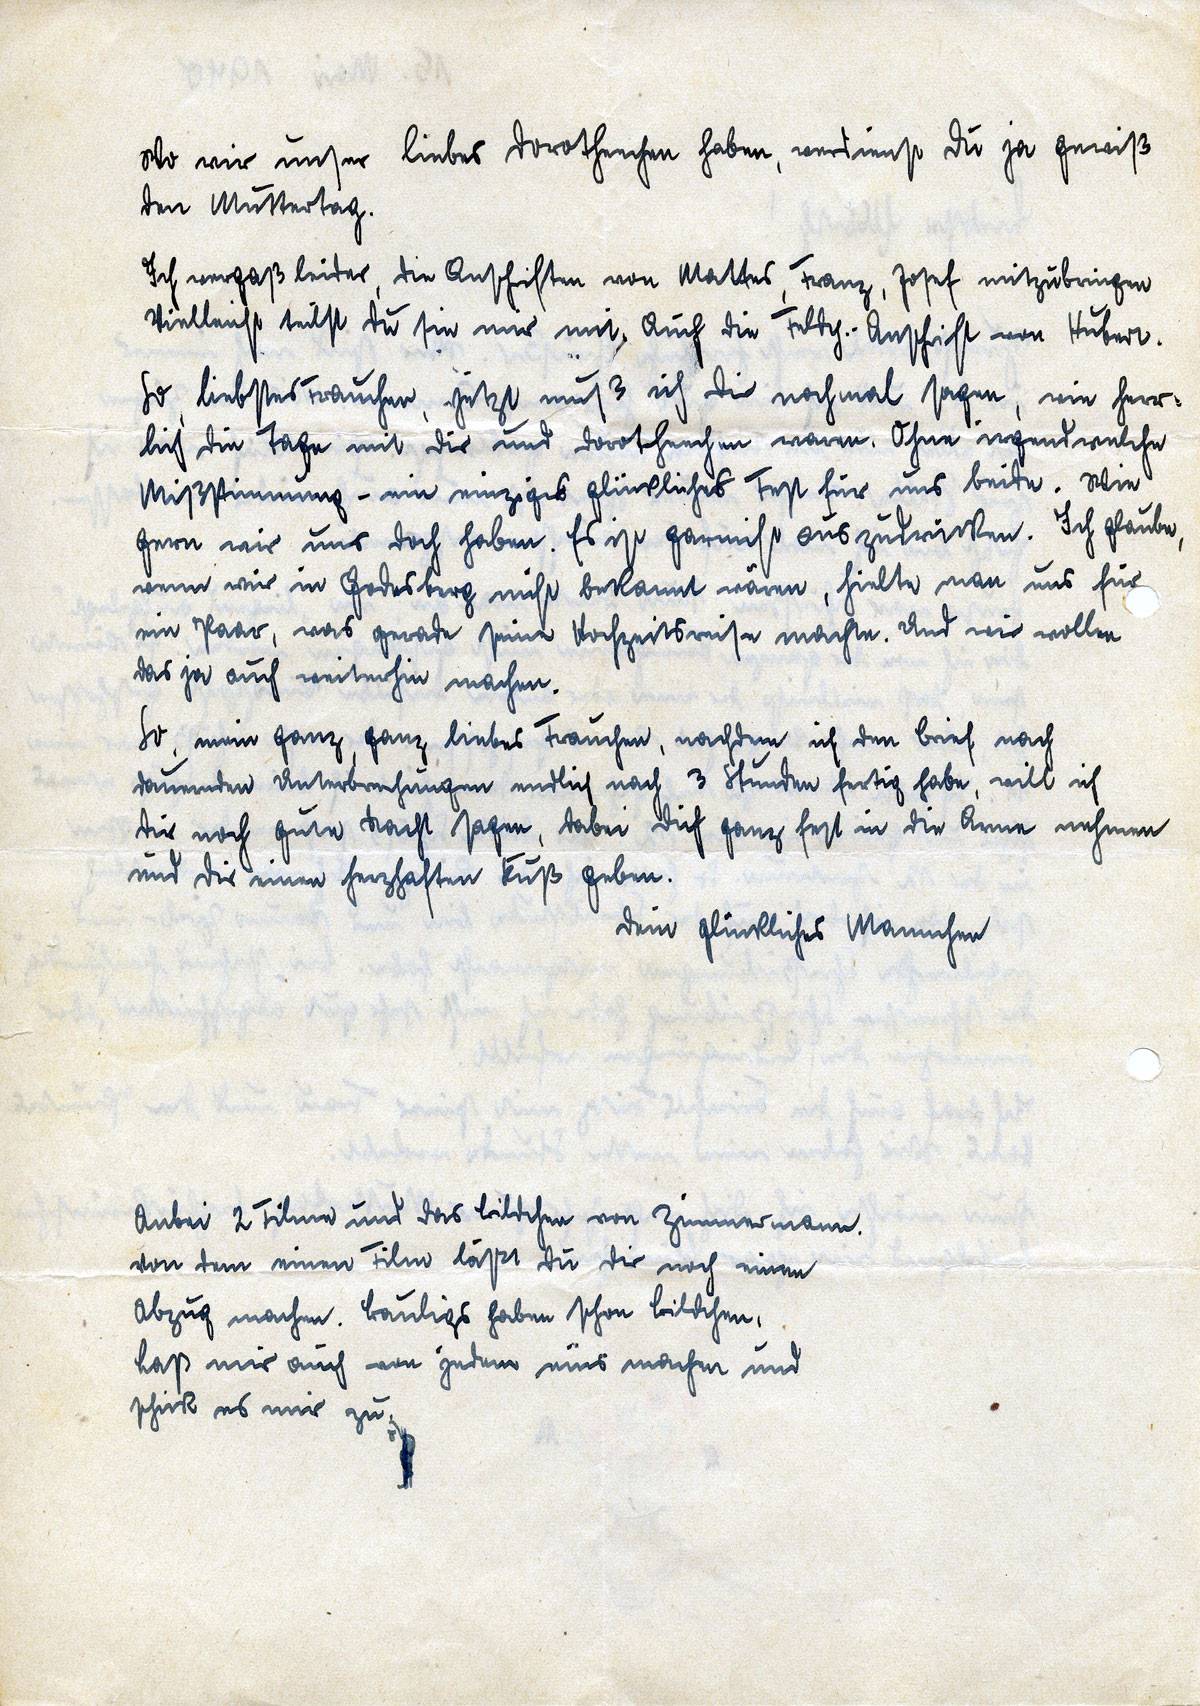 Wo wir unser liebes Dorotheechen haben, verdienst Du ja gewiß
den Muttertag.
Ich vergaß leider, die Anschriften von Mattes, Franz, Josef mitzubringen
Vielleicht teilst Du sie mir mit. Auch die Feldp.-Anschrift von Hubert.
So, liebstes Frauchen, jetzt muß ich Dir nochmal sagen, wie herr-
lich die Tage mit Dir und Dorotheechen waren. Ohne irgendwelche
Mißstimmung - ein einziges glückliches Fest für uns beide. Wie
gern wir uns doch haben. Es ist garnicht auszudrücken. Ich glaube,
wenn wir in Godesberg nicht bekannt wären, hielte man uns für
ein Paar, was gerade seine Hochzeitsreise machte. Und wir wollen
das ja auch weiterhin machen.
So, mein ganz, ganz liebes Frauchen, nachdem ich den Brief nach
dauernden Unterbrechungen endlich nach 3 Stunden fertig habe, will ich
Dir noch gute Nacht sagen, dabei Dich ganz fest in die Arme nehmen
und Dir einen herzhaften Kuß geben.
Dein glückliches Mannchen
Anbei 2 Filme und das Bildchen von Zimmermann.
Von dem einen Film läßt Du Dir noch einen
Abzug machen. Bauligs haben schon Bildchen.
Laß mir auch von jedem eins machen und
schick es mir zu.